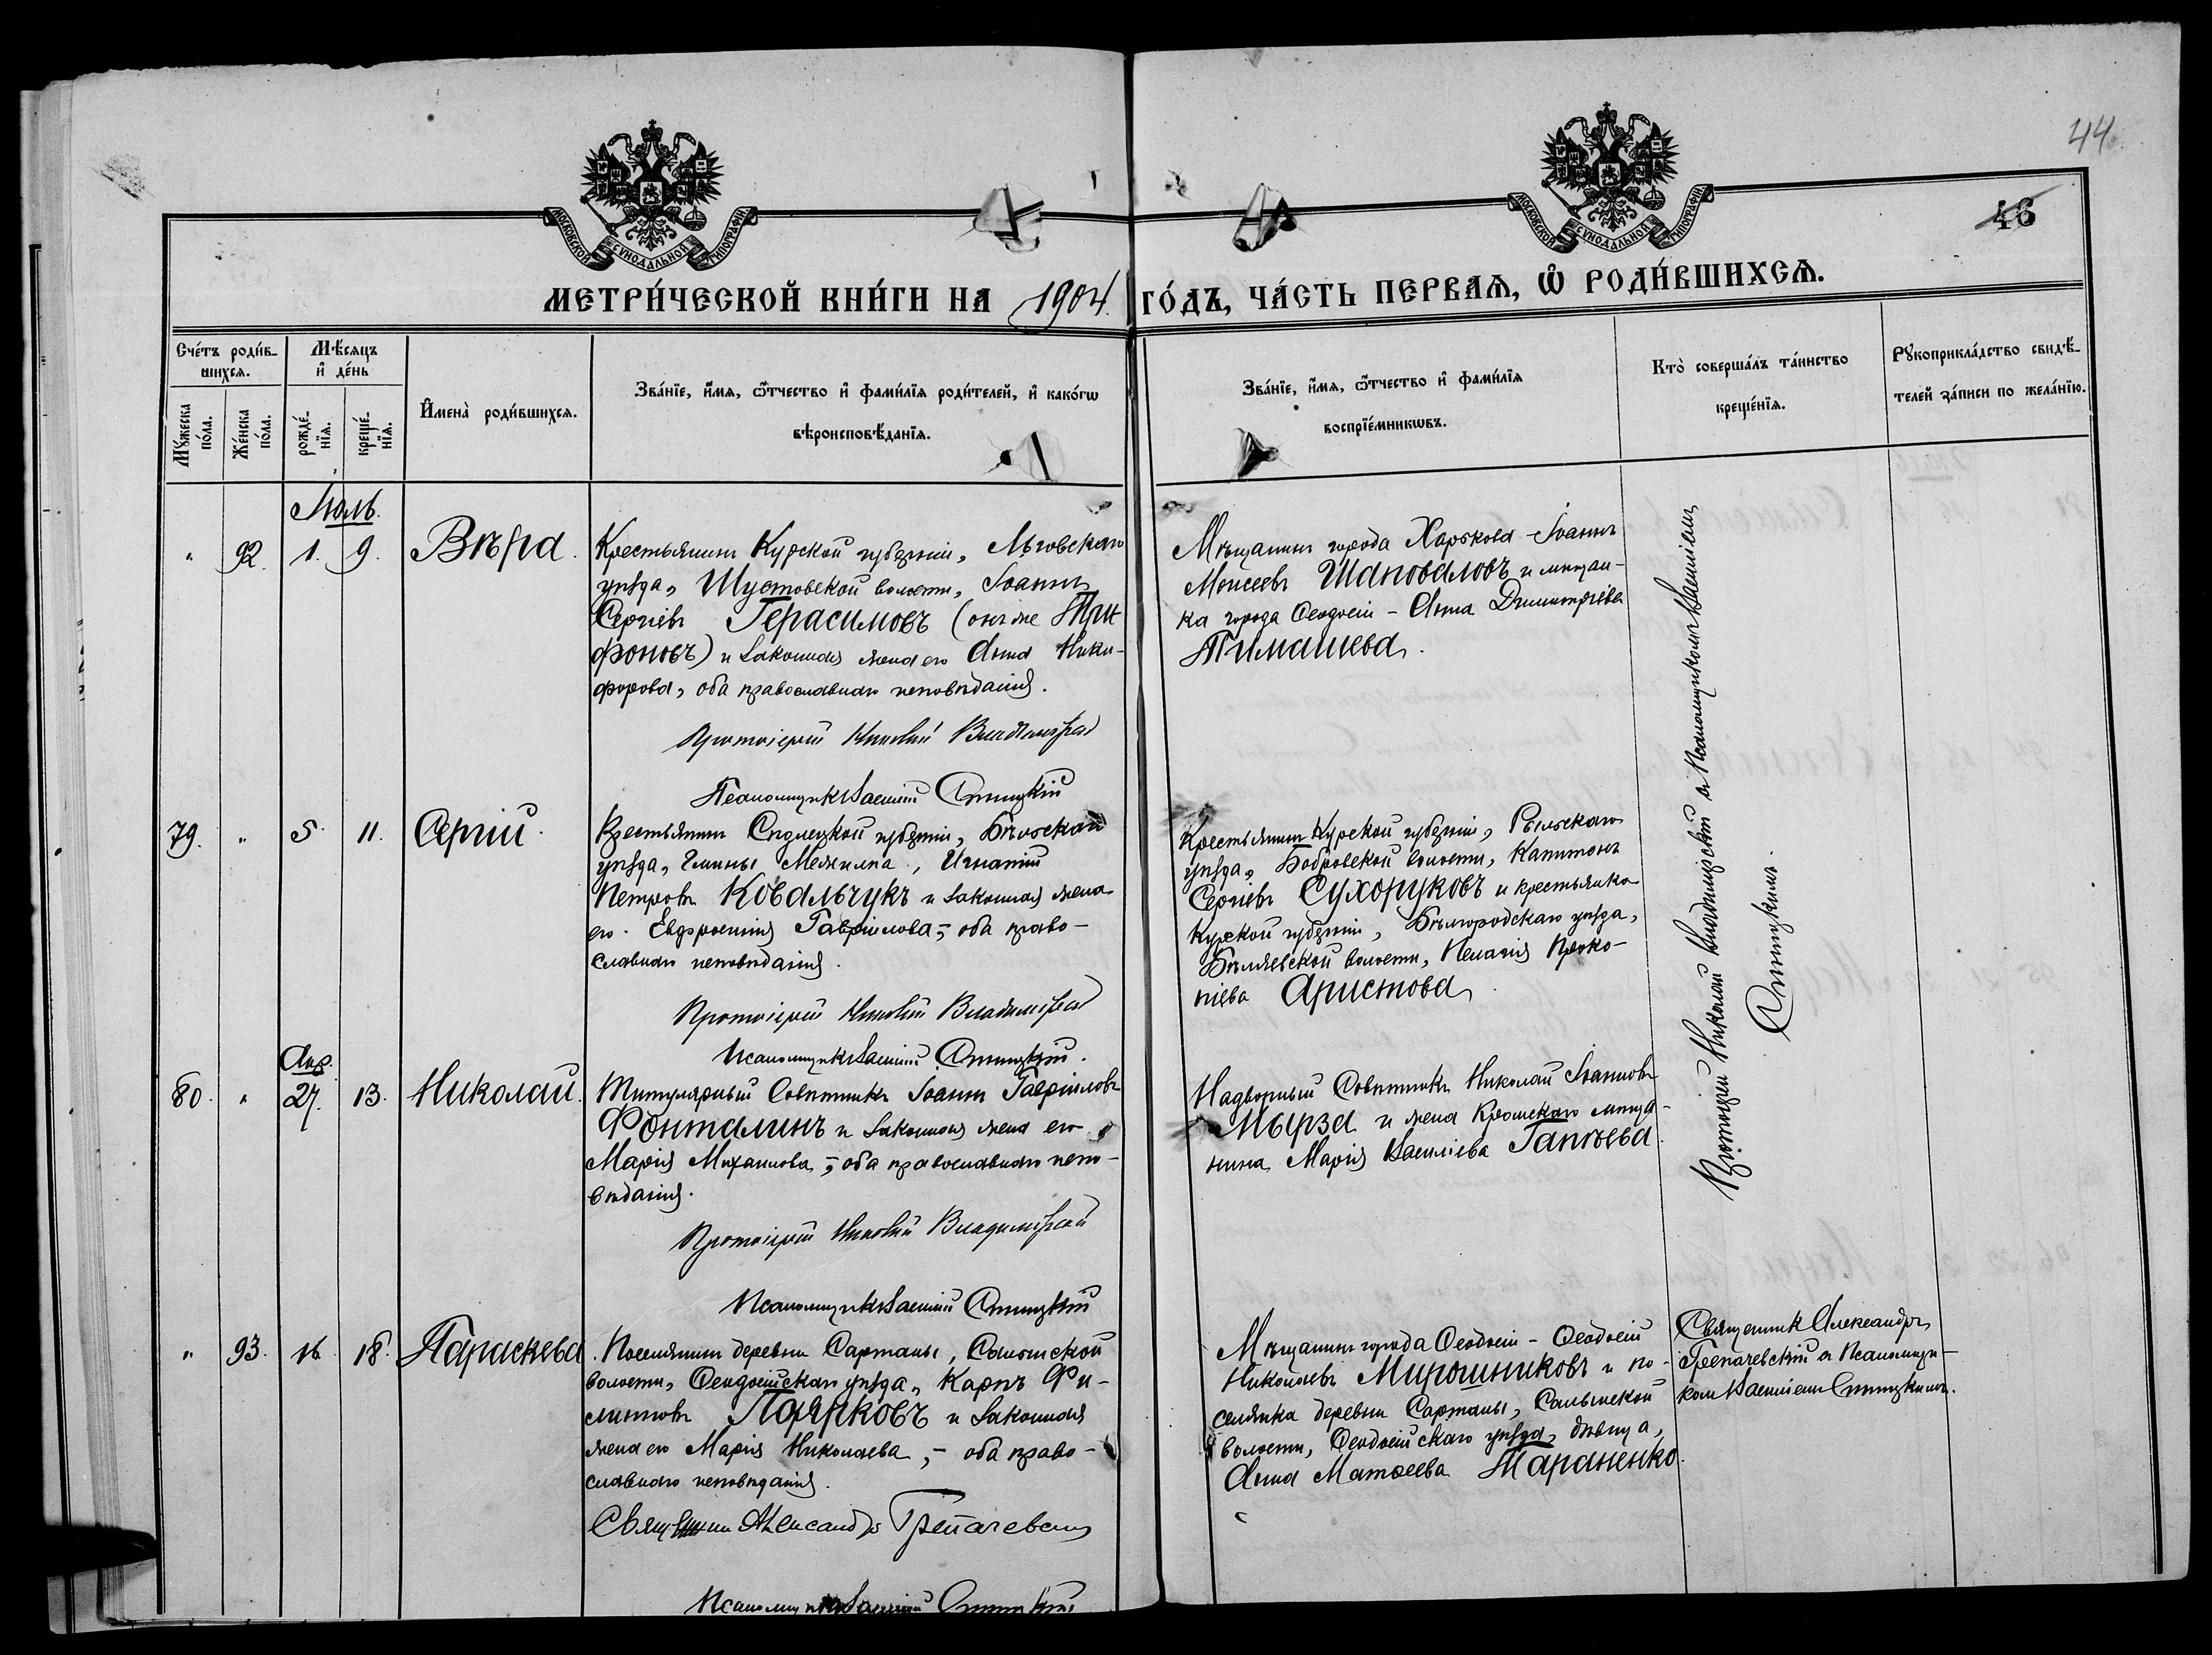 44
46
МОСКОВСКОЙ СѴНОДАЛЬНОЙ ТИПОГРАФІИ
МОСКОВСКОЙ СѴНОДАЛЬНОЙ ТИПОГРАФІИ
МЕТРИ́ЧЕСКОЙ КНИ́ГИ НА 1904. ГО́ДЪ, ЧА́СТЬ ПЕРВАѦ, Ѽ РОДИ́ВШИХСѦ.
Сче́тъ роди́в-
шихсѧ.
Мꙋжеска
по́ла.
Же́нска
по́ла.
Мѣ́сяцъ
и҆ де́нь
рожде́-
нїѧ.
креще́-
нїѧ.
И҆мена̀ роди́вшихсѧ.
Зва́нїе, и҆́мѧ, ѻ҆́тчество и҆ фами́лїѧ роди́телей, и҆ како́гѡ
вѣроисповѣ́данїѧ.
Зва́нїе, и҆́мѧ, ѻ҆́тчество и҆ фами́лїѧ
воспрїе́мникѡвъ.
Кто̀ соверша́лъ та́инство
креще́нїѧ.
Рꙋкоприкла́дство свидѣ́-
телей за́писи по жела́нїю.
Іюль.
" 92. 1. 9. Вѣра.
Крестьянинъ Курской губерніи, Льговскаго
уѣзда, Шустовской волости, Іоаннъ
Сергіевъ Герасимовъ (онъ же Три
фоновъ) и законная жена его Анна Ники-
форова, оба православнаго исповѣданія.
Протоіерей Николай Владимірскій
Псаломщикъ Василій
Мѣщанинъ города Харькова - Іоаннъ
Моисеевъ Шаповаловъ и мѣщан-
ка города Ѳеодосіи - Анна Димитріева
Тимашева.
79. " 5. 11. Сергій.
Крестьянинъ Сѣдлецкой губерніи, Бѣльскаго
уѣзда, гмины, Игнатій
Петровъ Ковальчукъ и законная жена
его Евфросинія Гавріилова, - оба право-
славнаго исповѣданія.
Протоіерей Николай Владимірскій
Псаломщикъ Василій
Крестьянинъ Курской губерніи, Рыльскаго
уѣзда, Бобровской волости, Капитонъ
Сергіевъ Сухоруковъ и крестьянка
Курской губерніи, Бѣлгородскаго уѣзда,
волости, Пелагія Проко-
піева Аристова.
Апр.
80. " 27. 13. Николай.
Титулярный Совѣтникъ Іоаннъ Гавріиловъ
Фонталинъ и законная жена его
Марія Михаилова, - оба православнаго испо-
вѣданія.
Протоіерей Николай Владимірскій
Псаломщикъ Василій
Надворный Совѣтникъ Николай Іоанновъ
Мырза и жена Кромскаго мѣща-
нина Марія Василіева Гапѣева.
Протоіерей Николай Владимірскій съ Псаломщикомъ Василіемъ
" 93. 16. 18. Параскева.
Поселянинъ деревни Сартаны, Салынской
волости, Ѳеодосійскаго уѣзда, Карпъ Фи-
липповъ Поярковъ и законная
жена его Марія Николаева, - оба право-
славнаго исповѣданія.
Александръ Грепачевскій
Псаломщикъ Василій
Мѣщанинъ города Ѳеодосіи - Ѳеодосій
Николаевъ Мирошниковъ и по-
селянка деревни Сартаны, Салынской
волости, Ѳеодосійскаго уѣзда, дѣвица,
Анна Матѳеева Тараненко.
Священникъ Александръ
Грепачевскій съ Псаломщи-
комъ Василіемъ